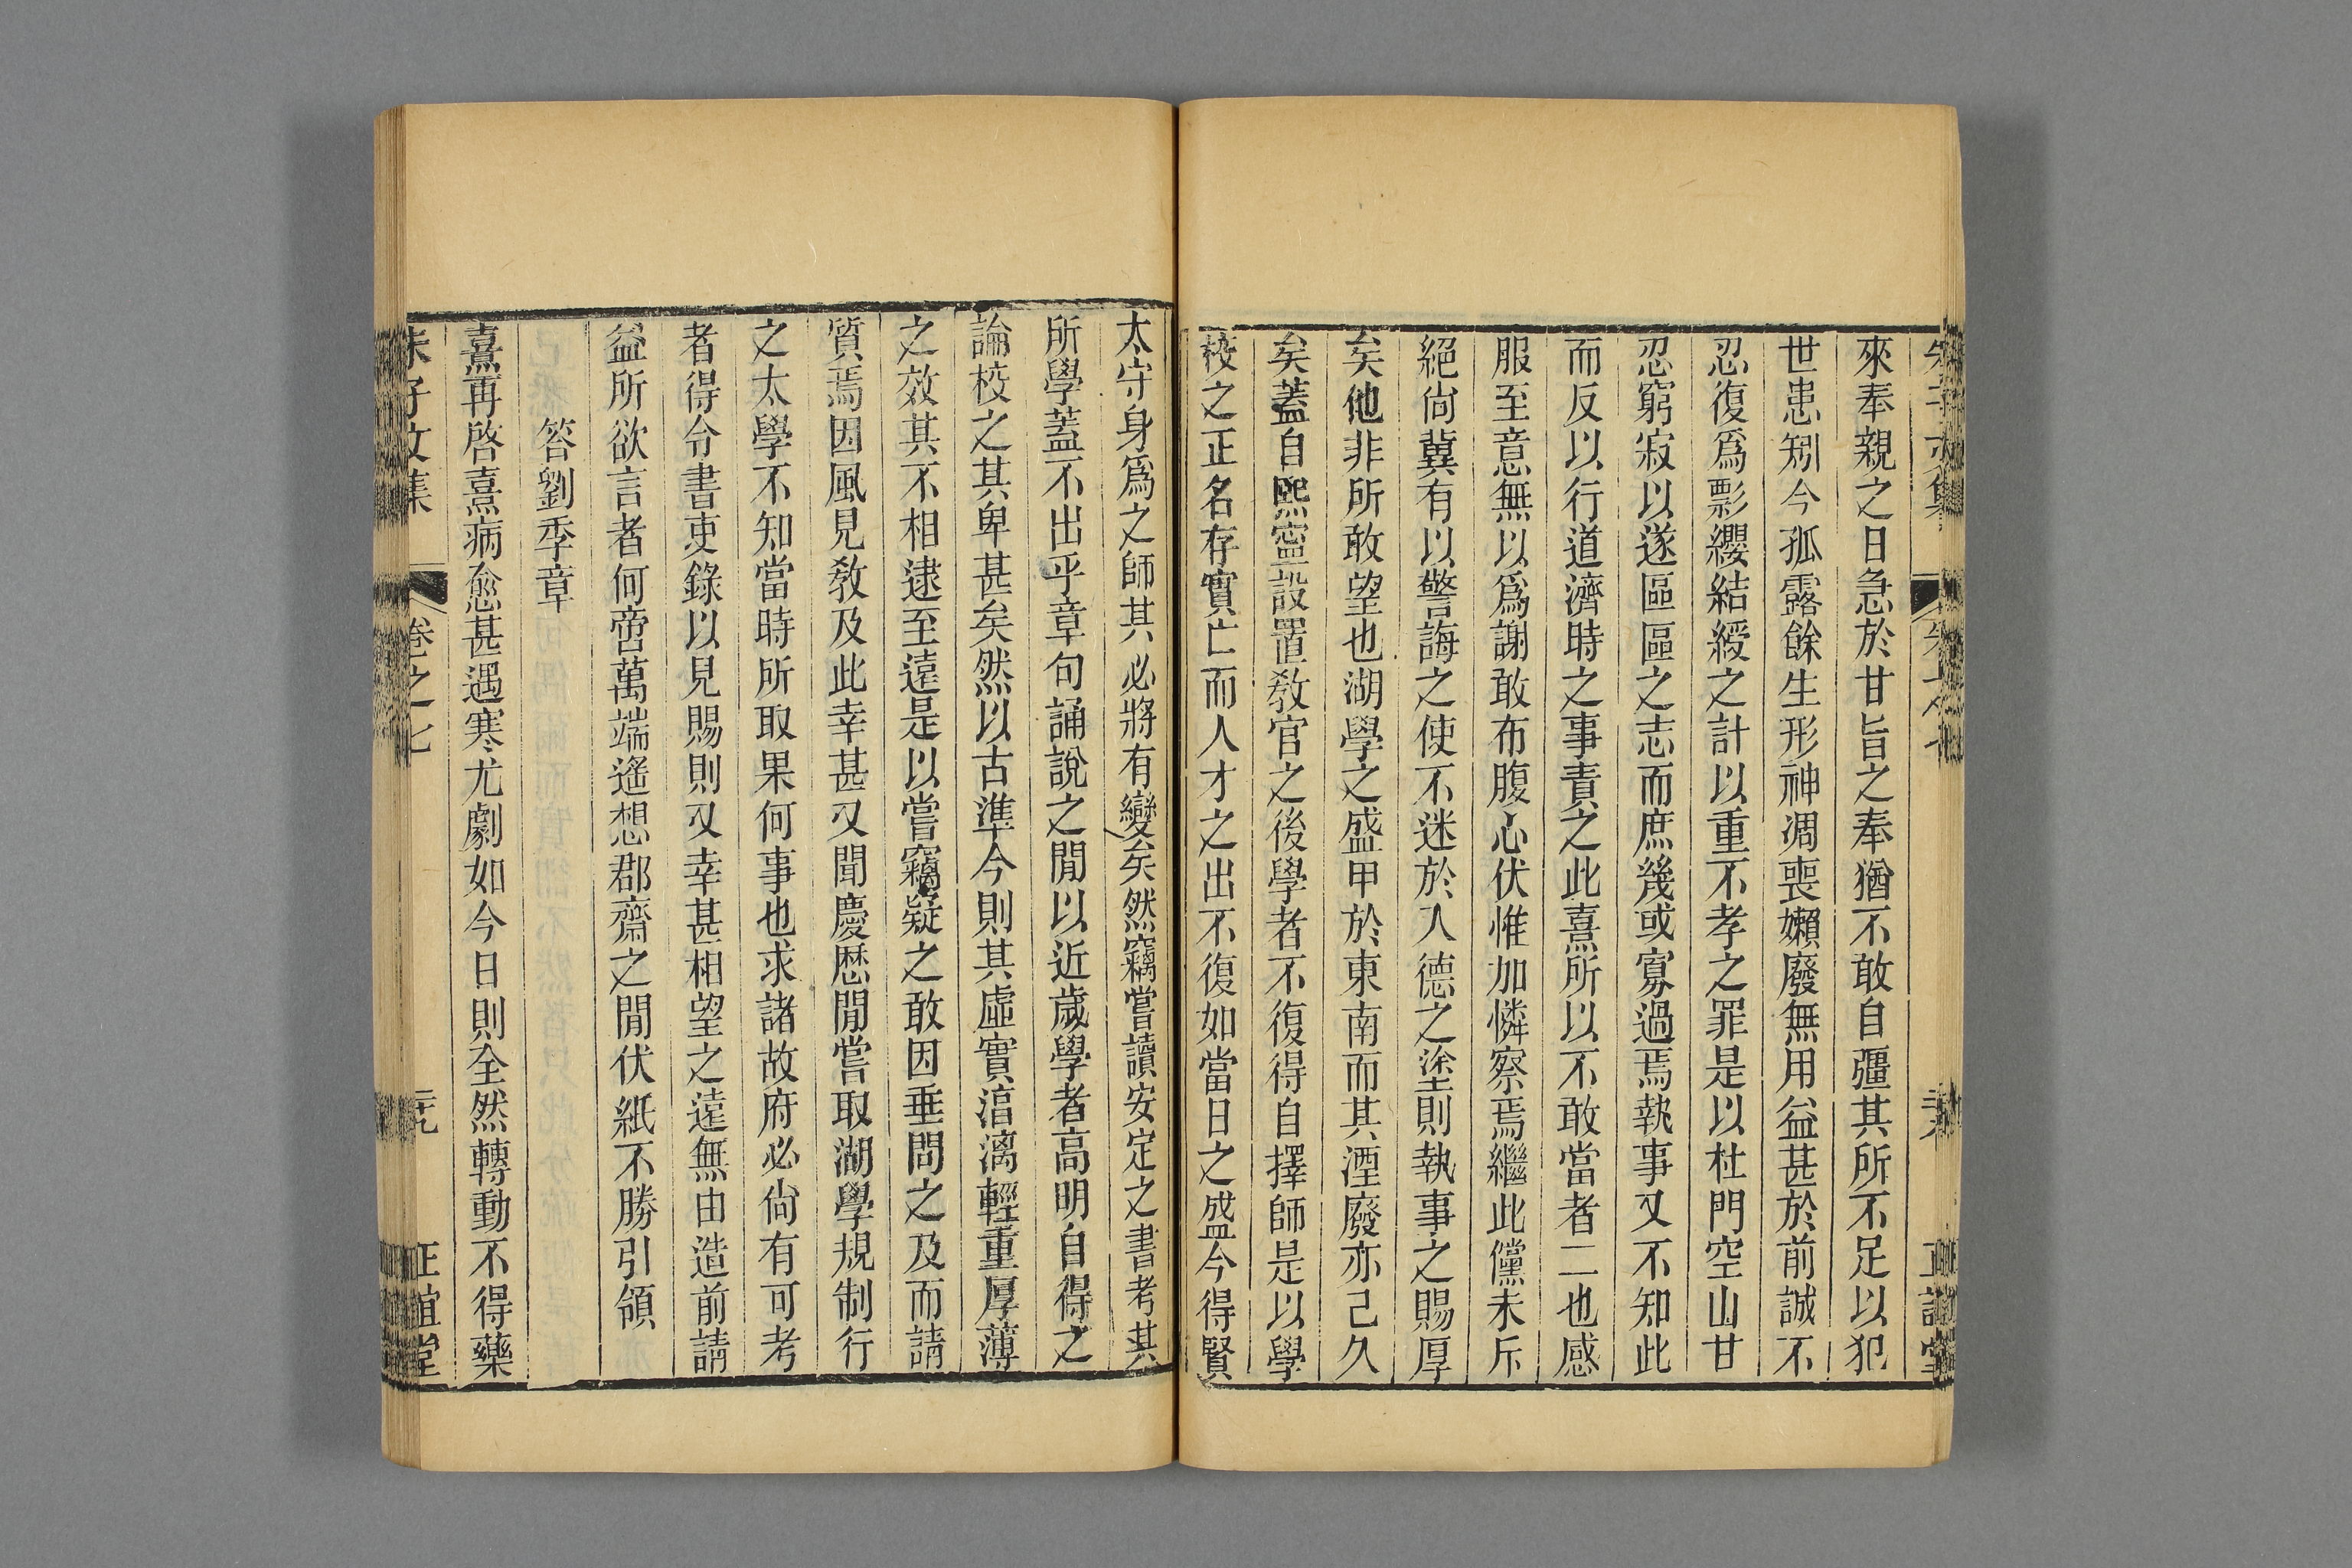 來奉親之日急於甘旨之奉猶不敢自彊其所不足以犯
世患矧今孤露餘生形神凋喪嬾廢無用益甚於前誠不
忍復爲彯纓結綬之計以重不孝之罪是以杜門空山甘
忍窮寂以遂區區之志而庶幾或寡過焉執事又不知此
而反以行道濟時之事責之此熹所以不敢當者二也感
服至意無以爲謝敢布腹心伏惟加憐察焉繼此儻未斥
絕尙冀有以警誨之使不迷於入德之塗則執事之賜厚
矣他非所敢望也湖學之盛甲於東南而其湮廢亦己久
矣蓋自熙寧設置敎官之後學者不復得自擇師是以學
校之正名存實亡而人才之出不復如當日之盛今得賢
太守身爲之師其必將有變矣然竊嘗讀安定之書考其
所學蓋不出乎章句誦說之閒以近歲學者高明自得之
論校之其卑甚矣然以古準今則其虛實湻漓輕重厚薄
之效其不相逮至遠是以嘗竊疑之敢因垂問之及而請
質焉因風見敎及此幸甚又聞慶歷閒嘗取湖學規制行
之太學不知當時所取果何事也求諸故府必尙有可考
者得令書吏錄以見賜則又幸甚相望之遠無由造前請
益所欲言者何啻萬端遙想郡齋之閒伏紙不勝引領
答劉季章
熹再啓熹病愈甚遇寒尤劇如今日則全然轉動不得藥
朱子文集 卷之七 正誼堂